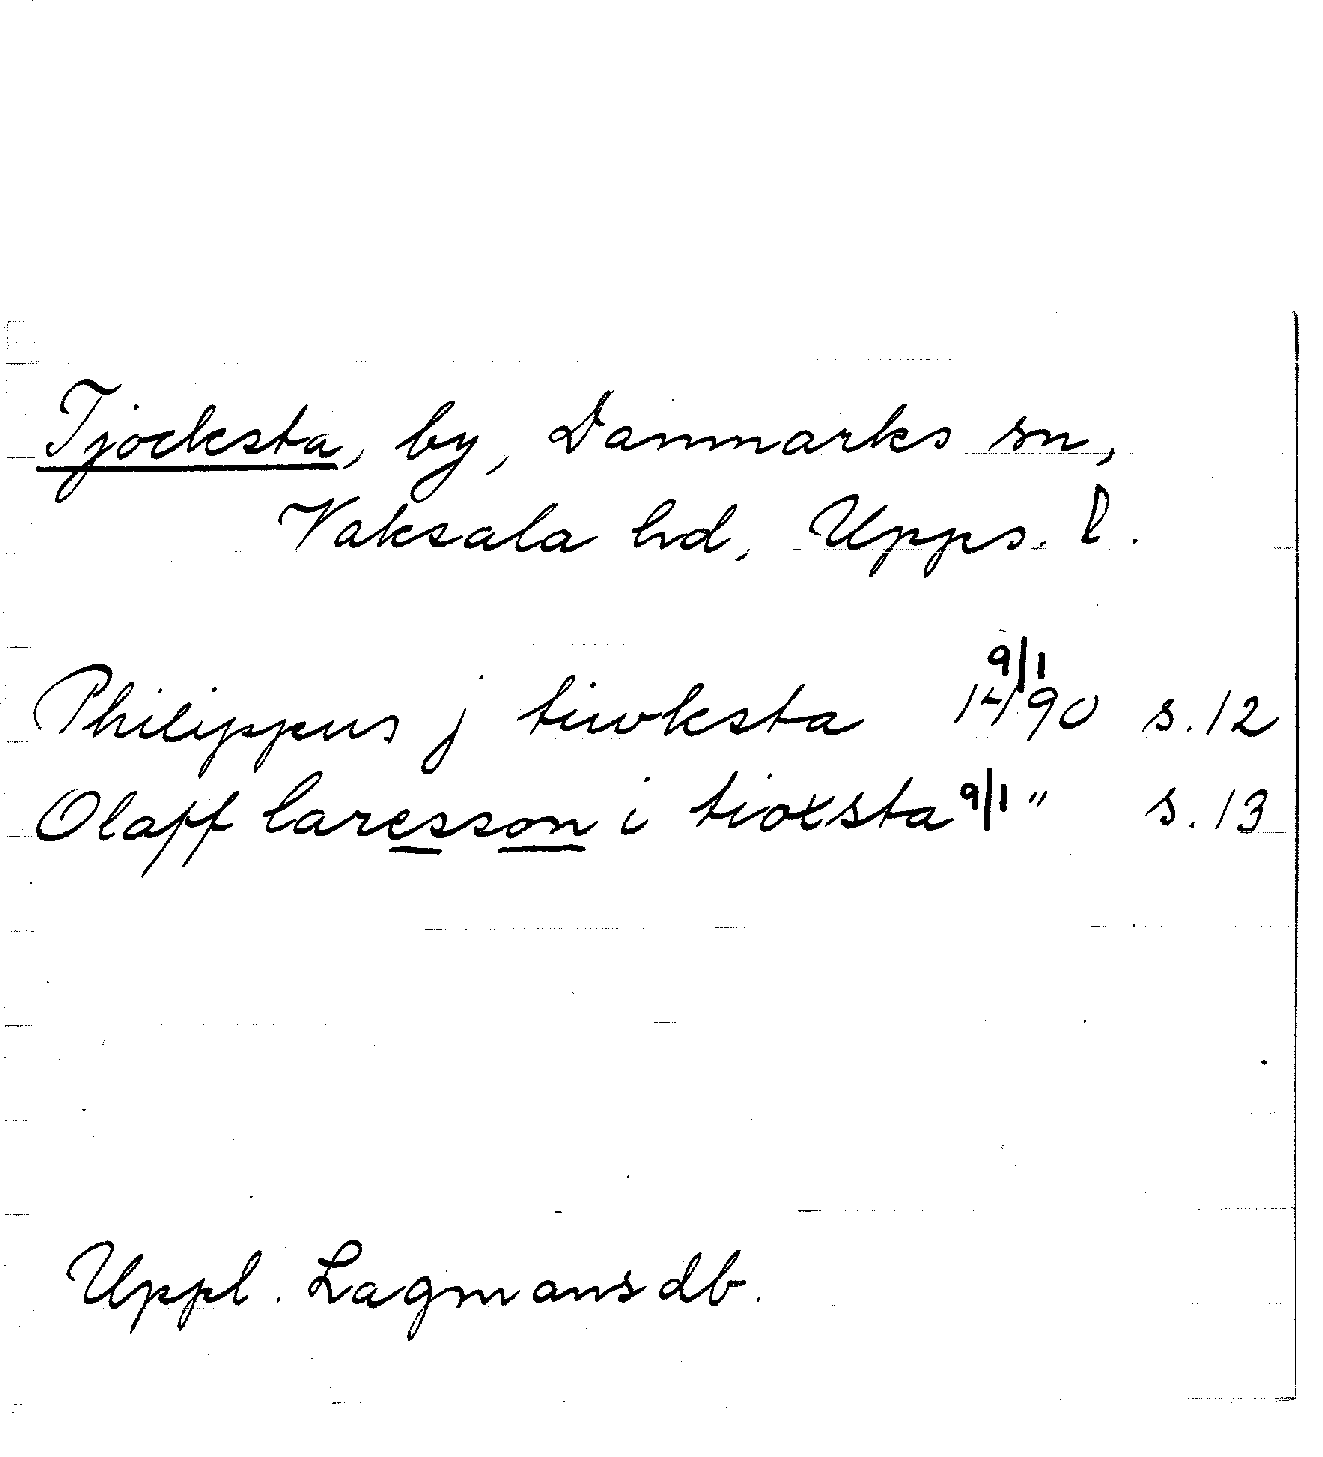 Tjocksta, by, Danmarks sn,
Vaksala hd, Upps. l.
Philippus j tiwksta 9/1 1490 s. 12
Olaff laresson i tioxsta 9/1 " s. 13
Uppl. Lagmansdb.